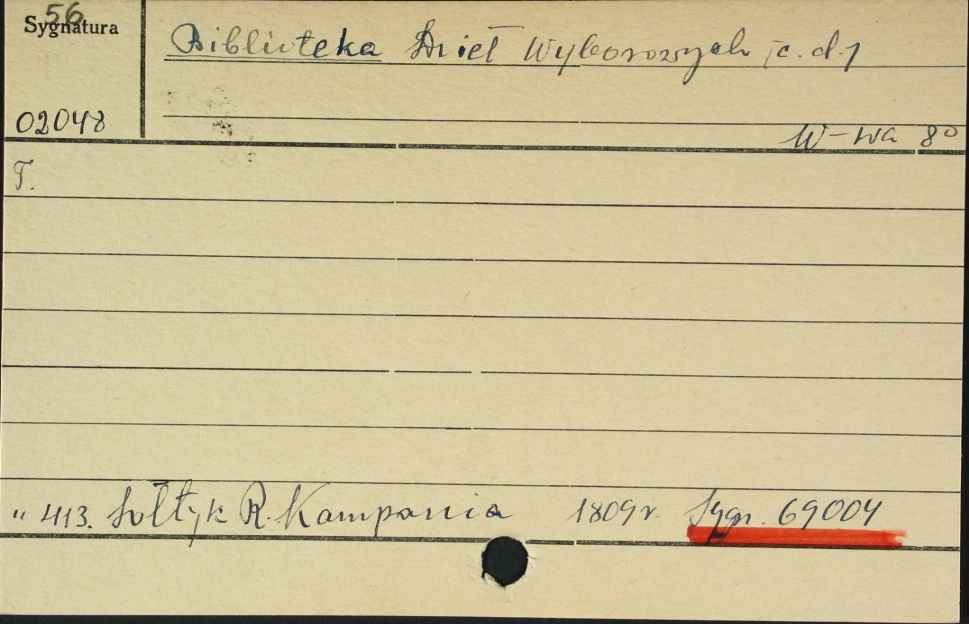 56
Sygnatura
Biblioteka Dzieł Wyborowych /c.d./
02048
W-wa 8°
T.
" 413. Sołtyk R. Kampania 1809 r. Sygn. 69004